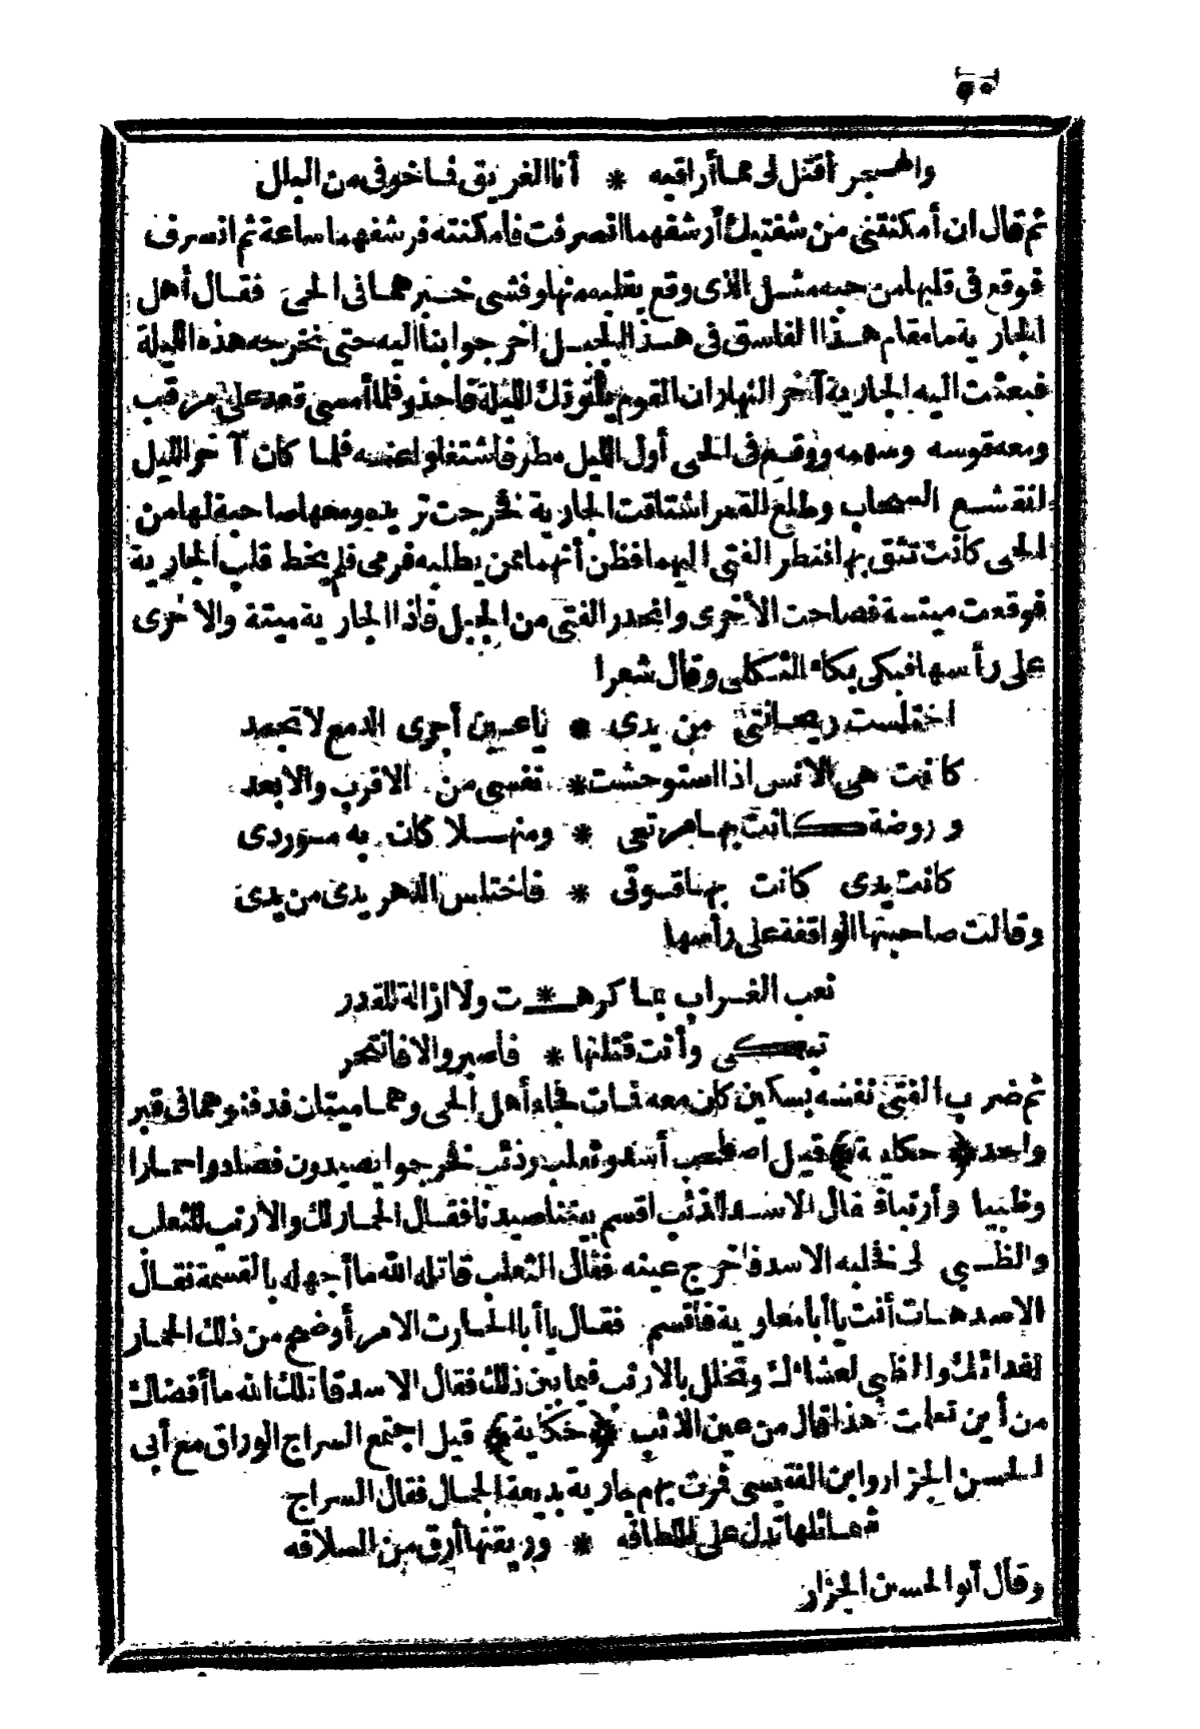 والهجر أقتل لى مما أراقبه * أنا الغريق فما خوفى من البلل
ثم قال ان أمكنتنى من شفتيك أرشفهما انصرفت فامكنته فرشفهما ساعة ثم انصرف
فوقع فى قلبها من حبه مثل الذى وقع بقلبه منها وفشى خبرهما فى الحى فقال أهل
الجارية ما مقام هذا الفاسق فى هذا الجبل اخرجوا بنا اليه حتى نخرجه هذه الليلة
فبعثت اليه الجارية آخر النهار ان القوم يأتوك الليلة فاحذر فلما أمسى قعد على مرقب
ومعه قوسه وسهمه ووقع فى الحى أول الليل مطر فاشتغلوا عنه فلما كان آخر الليل
انقشع السحاب وطلع القمر اشتاقت الجارية فخرجت تريده ومعها صاحبة لها من
الحى كانت تثق بها فنظر الفتى اليهما فظن أنهما ممن يطلبه فرمى فلم يخط قلب الجارية
فوقعت ميتة فصاحت الأخرى وانحدر الفتى من الجبل فاذا الجارية ميتة والاخرى
على رأسها فبكى بكاء الثكلى وقال شعرا
اختلست ريحانتى من يدى * يا عين أجرى الدمع لا تجمد
كانت هى الانس اذا استوحشت * نفسى من الاقرب والابعد
وروضة كانت بها مرتعى * ومنهلا كان به موردى
كانت يدى كانت بها قوتى * فاختلس الدهر يدى من يدى
وقالت صاحبتها الواقفة على رأسها
نعب الغراب بما كرهـ * ـت ولا ازالة للقدر
تبكى وأنت قتلتها * فاصبر والا فانتحر
ثم ضرب الفتى نفسه بسكين كان معه فمات فجاء أهل الحى وهما ميتان فدفنوهما فى قبر
واحد ﴿حكاية﴾ قيل اصطحب أسد وثعلب وذئب فخرجوا يصيدون فصادوا حمارا
وظبيا وأرنبا فقال الاسد للذئب اقسم بيننا صيدنا فقال الحمار لك والارنب للثعلب
والظبى لى فخلبه الاسد فاخرج عينه فقال الثعلب قاتله الله ما أجهله بالقسمة فقال
الاسد هات أنت يا أبا معاوية فاقسم فقال يا أبا الحارث الامر أوضح من ذلك الحمار
لغدائك والظبى لعشائك وتخلل بالارنب فيما بين ذلك فقال الاسد قاتلك الله ما أقضاك
من أين تعلمت هذا قال من عين الذئب ﴿حكاية﴾ قيل اجتمع السراج الوراق مع أبى
الحسن الجزار وابن الفقيسى فمرت بهم جارية بديعة الجمال فقال السراج
شمائلها تدل على اللطافه * وريقتها أرق من السلافه
وقال أبو الحسين الجزار